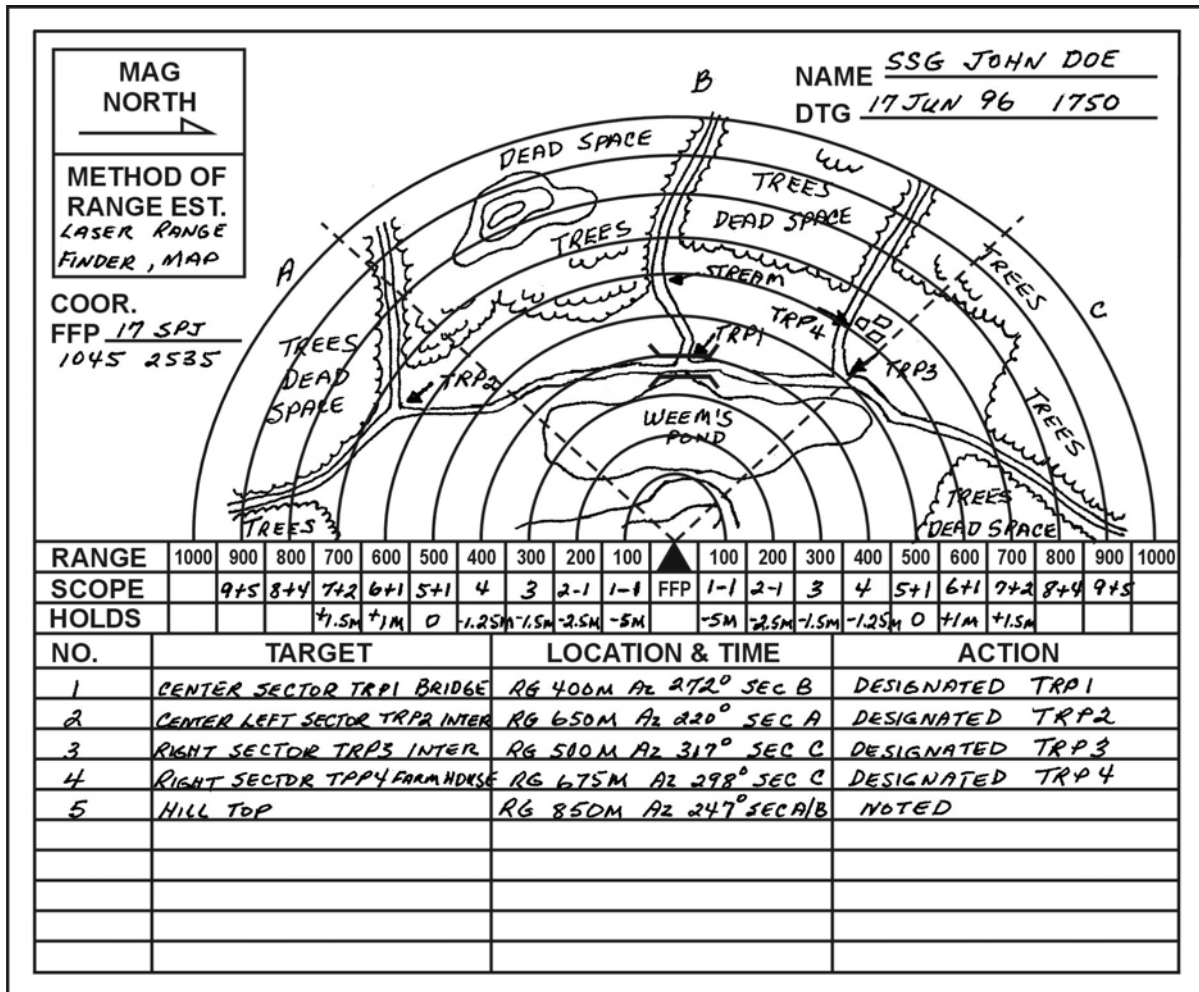 MAG
NORTH
METHOD OF
RANGE EST.
LASER RANGE
FINDER, MAP
COOR.
FFP 17 SPJ
1045 2535
NAME SSG JOHN DOE
DTG 17 JUN 96 1750
A
B
C
DEAD SPACE
TREES
TREES
DEAD SPACE
TREES
STREAM
TRP4
TRP1
TRP3
TREES
DEAD
SPACE
TRP2
WEEM'S
POND
TREES
TREES
TREES
DEAD SPACE
RANGE 1000 900 800 700 600 500 400 300 200 100 100 200 300 400 500 600 700 800 900 1000
SCOPE 9+5 8+4 7+2 6+1 5+1 4 3 2-1 1-1 FFP 1-1 2-1 3 4 5+1 6+1 7+2 8+4 9+5
HOLDS +1.5M +1M 0 -1.25M -1.5M -2.5M -5M -5M -2.5M -1.5M -1.25M 0 +1M +1.5M
NO. TARGET LOCATION & TIME ACTION
1 CENTER SECTOR TRP1 BRIDGE RG 400M AZ 272° SEC B DESIGNATED TRP1
2 CENTER LEFT SECTOR TRP2 INTER RG 650M AZ 220° SEC A DESIGNATED TRP2
3 RIGHT SECTOR TRP3 INTER RG 500M AZ 317° SEC C DESIGNATED TRP3
4 RIGHT SECTOR TPP4 FARM HOUSE RG 675M AZ 298° SEC C DESIGNATED TRP4
5 HILL TOP RG 850M AZ 247° SEC A/B NOTED